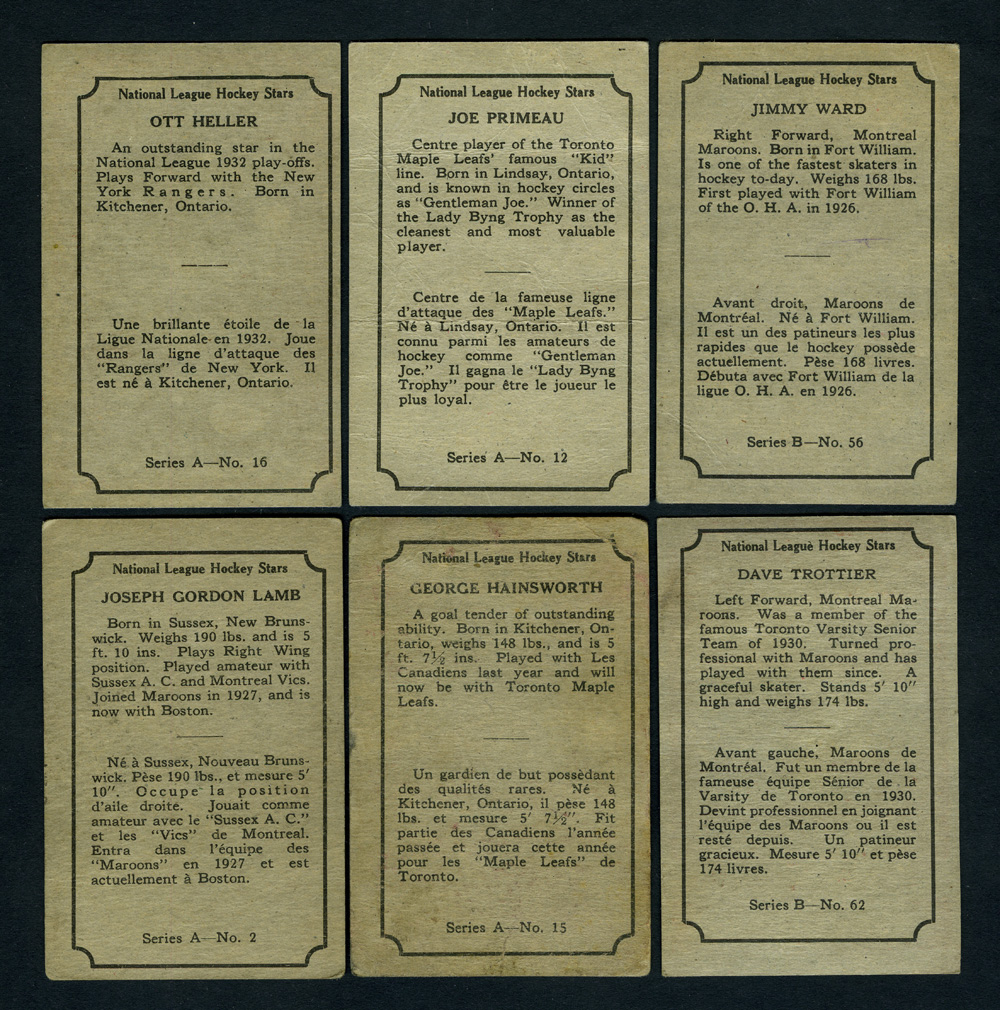 National League Hockey Stars
OTT HELLER
An outstanding star in the
National League 1932 play-offs.
Plays Forward with the New
York Rangers. Born in
Kitchener, Ontario.
Une brillante étoile de la
Ligue Nationale en 1932. Joue
dans la ligne d'attaque des
"Rangers" de New York. Il
est né à Kitchener, Ontario.
Series A—No. 16
National League Hockey Stars
JOE PRIMEAU
Centre player of the Toronto
Maple Leafs' famous "Kid"
line. Born in Lindsay, Ontario,
and is known in hockey circles
as "Gentleman Joe." Winner of
the Lady Byng Trophy as the
cleanest and most valuable
player.
Centre de la fameuse ligne
d'attaque des "Maple Leafs."
Né à Lindsay, Ontario. Il est
connu parmi les amateurs de
hockey comme "Gentleman
Joe." Il gagna le "Lady Byng
Trophy" pour être le joueur le
plus loyal.
Series A—No. 12
National League Hockey Stars
JIMMY WARD
Right Forward, Montreal
Maroons. Born in Fort William.
Is one of the fastest skaters in
hockey to-day. Weighs 168 lbs.
First played with Fort William
of the O. H. A. in 1926.
Avant droit, Maroons de
Montréal. Né à Fort William.
Il est un des patineurs les plus
rapides que le hockey possède
actuellement. Pèse 168 livres.
Débuta avec Fort William de la
ligue O. H. A. en 1926.
Series B—No. 56
National League Hockey Stars
JOSEPH GORDON LAMB
Born in Sussex, New Bruns-
wick. Weighs 190 lbs. and is 5
ft. 10 ins. Plays Right Wing
position. Played amateur with
Sussex A. C. and Montreal Vics.
Joined Maroons in 1927, and is
now with Boston.
Né à Sussex, Nouveau Bruns-
wick. Pèse 190 lbs., et mesure 5'
10". Occupe la position
d'aile droite. Jouait comme
amateur avec le "Sussex A. C."
et les "Vics" de Montreal.
Entra dans l'équipe des
"Maroons" en 1927 et est
actuellement à Boston.
Series A—No. 2
National League Hockey Stars
GEORGE HAINSWORTH
A goal tender of outstanding
ability. Born in Kitchener, On-
tario, weighs 148 lbs., and is 5
ft. 7½ ins. Played with Les
Canadiens last year and will
now be with Toronto Maple
Leafs.
Un gardien de but possèdant
des qualités rares. Né à
Kitchener, Ontario, il pèse 148
lbs. et mesure 5' 7½". Fit
partie des Canadiens l'année
passée et jouera cette année
pour les "Maple Leafs" de
Toronto.
Series A—No. 15
National League Hockey Stars
DAVE TROTTIER
Left Forward, Montreal Ma-
roons. Was a member of the
famous Toronto Varsity Senior
Team of 1930. Turned pro-
fessional with Maroons and has
played with them since. A
graceful skater. Stands 5' 10"
high and weighs 174 lbs.
Avant gauche, Maroons de
Montréal. Fut un membre de la
fameuse équipe Sénior de la
Varsity de Toronto en 1930.
Devint professionnel en joignant
l'équipe des Maroons ou il est
resté depuis. Un patineur
gracieux. Mesure 5' 10" et pèse
174 livres.
Series B—No. 62